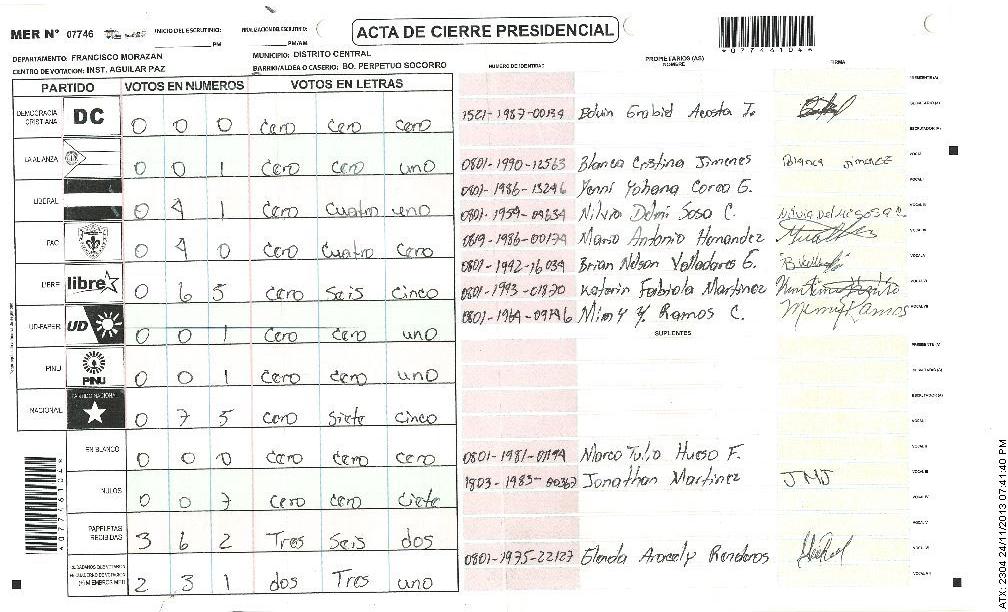 MER Nº 07746 INICIO DEL ESCRUTINIO: PM FINALIZACION DEL ESCRUTINIO: PM/AM
ACTA DE CIERRE PRESIDENCIAL
DEPARTAMENTO: FRANCISCO MORAZAN MUNICIPIO: DISTRITO CENTRAL
CENTRO DE VOTACION: INST. AGUILAR PAZ BARRIO/ALDEA O CASERIO: BO. PERPETUO SOCORRO
PARTIDO VOTOS EN NUMEROS VOTOS EN LETRAS
DEMOCRACIA CRISTIANA DC 0 0 0 cero cero cero
LA ALIANZA 0 0 1 cero cero uno
LIBERAL 0 4 1 cero cuatro uno
PAC 0 4 0 cero cuatro cero
LIBRE libre 0 6 5 cero seis cinco
UD-FAPER UD 0 0 1 cero cero uno
PINU PINU 0 0 1 cero cero uno
NACIONAL PARTIDO NACIONAL 0 7 5 cero siete cinco
EN BLANCO 0 0 0 cero cero cero
NULOS 0 0 7 cero cero ciete
PAPELETAS RECIBIDAS 3 6 2 Tres seis dos
2 3 1 dos Tres uno
NUMERO DE IDENTIDAD PROPIETARIOS (AS) NOMBRE FIRMA
1521-1987-00134 Edwin Grabiel Acosta
0801-1990-12563 Blanca Cristina Jimenes Blanca Jimenez
0801-1986-13246 Yenni Yohana Corea G.
0801-1959-04634 Nilvia Delmi Sosa C.
0819-1986-00174 Mario Antonio Hernandez
0801-1992-16034 Brian Nelson Valladares G.
0801-1993-01870 Katerin Fabiola Martinez
0801-1964-09746 Mimy Y. Ramos C. Mimy Ramos
SUPLENTES
0801-1981-07194 Marco Tulio Hueso F.
1803-1983-00367 Jonathan Martinez JMJ
0801-1975-22127 Glenda Aracely Renderos
*07746104*
ATX: 2304 24/11/2013 07:41:40 PM